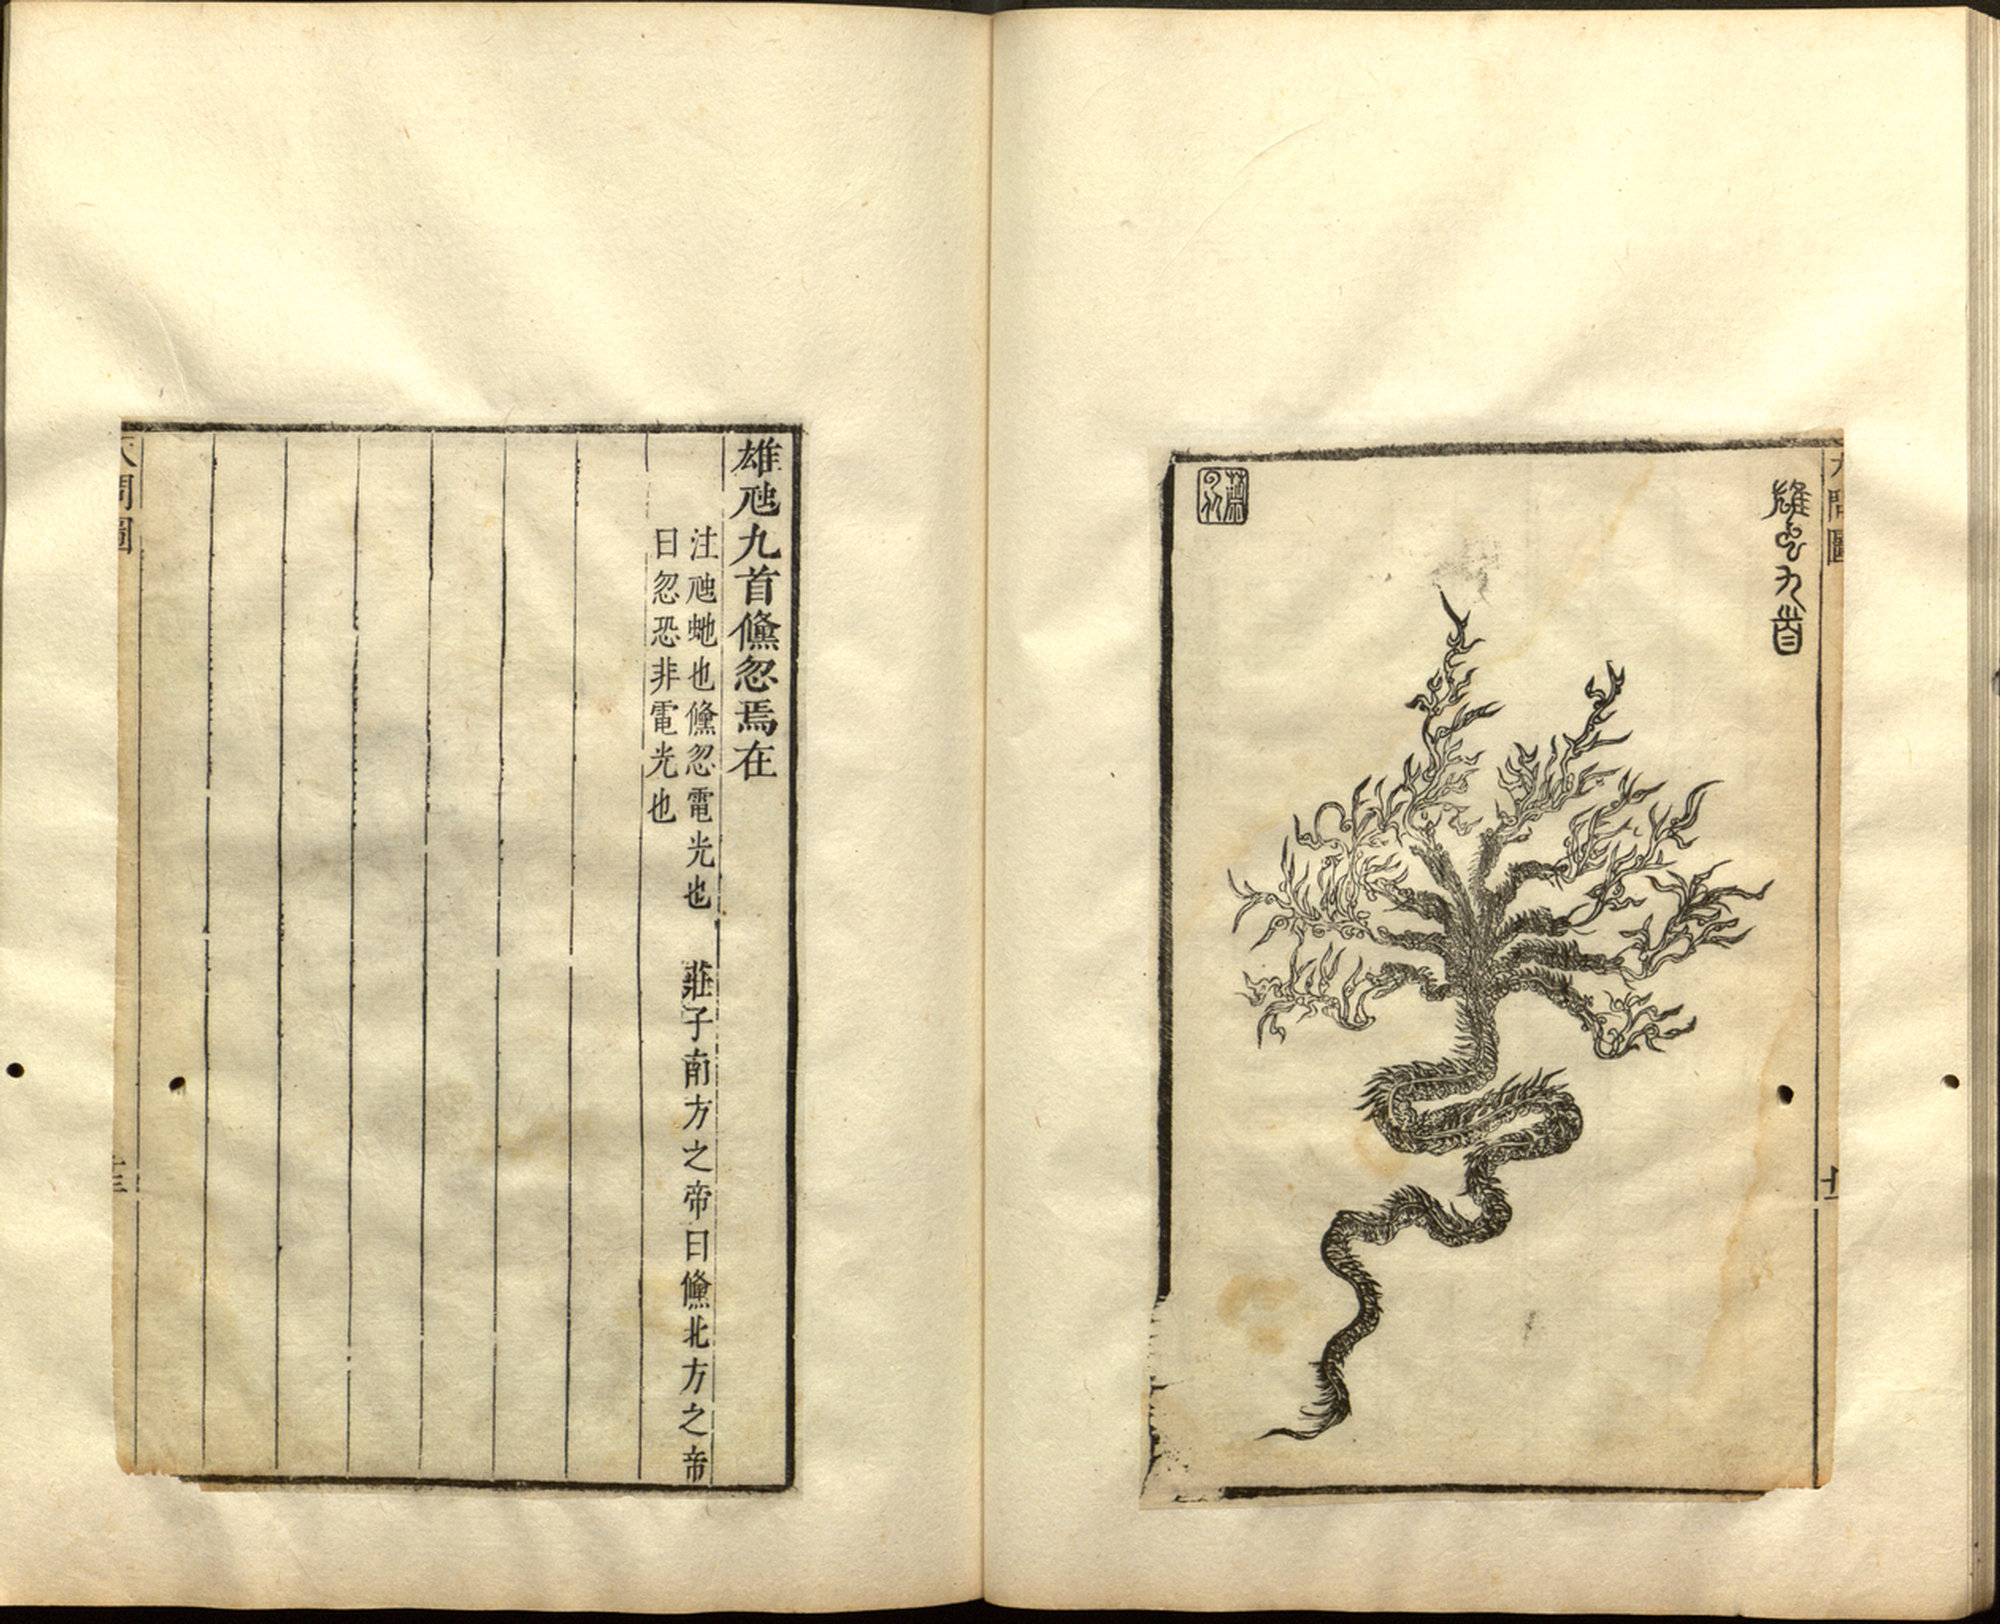 天問圖
雄虺九首
雄虺九首儵忽焉在
注虺虵也儵忽電光也 莊子南方之帝曰儵北方之帝
曰忽恐非電光也
天問圖